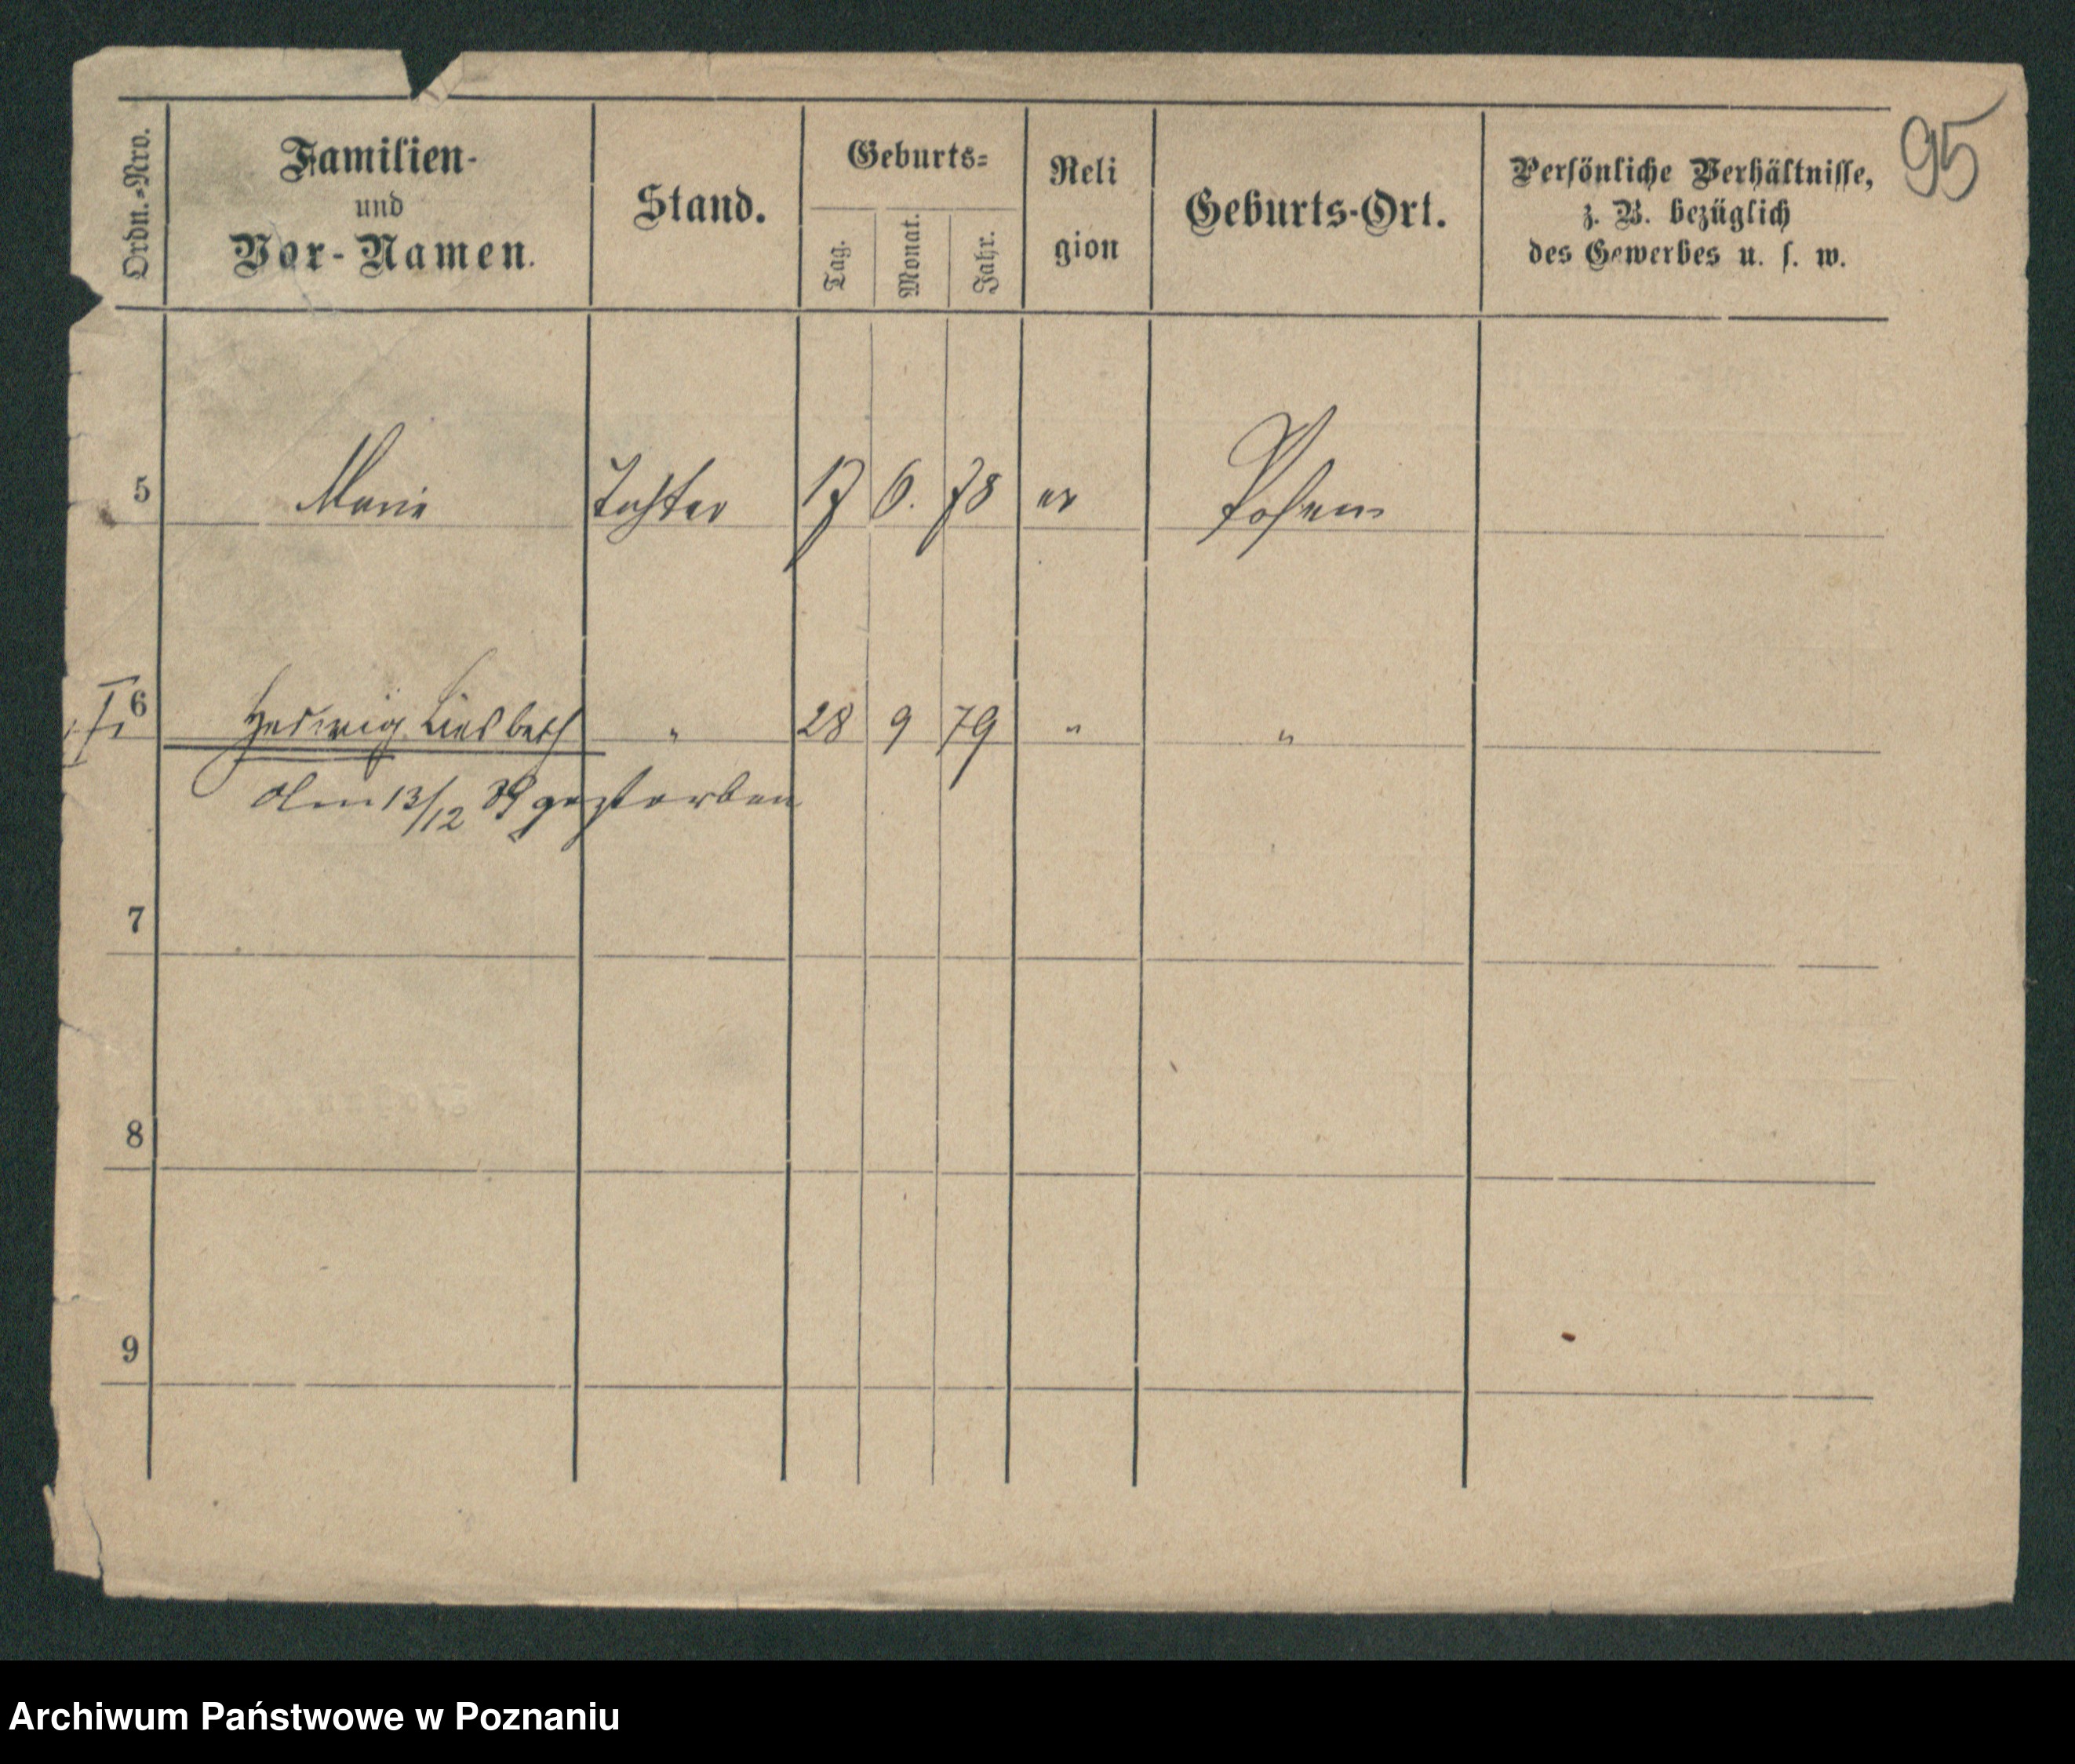 95
Ordn.-Nro.
Familien-
und
Vor-Namen.
Stand.
Geburts-
Tag.
Monat.
Jahr.
Reli
gion
Geburts-Ort.
Persönliche Verhältnisse,
z. B. bezüglich
des Gewerbes u. s. w.
5 Marie Tochter 17 6. 78 ev Posen
6 Hedwig Liesbeth " 28 9 79 " "
Am 13/12 89 gestorben
7
8
9
Archiwum Państwowe w Poznaniu